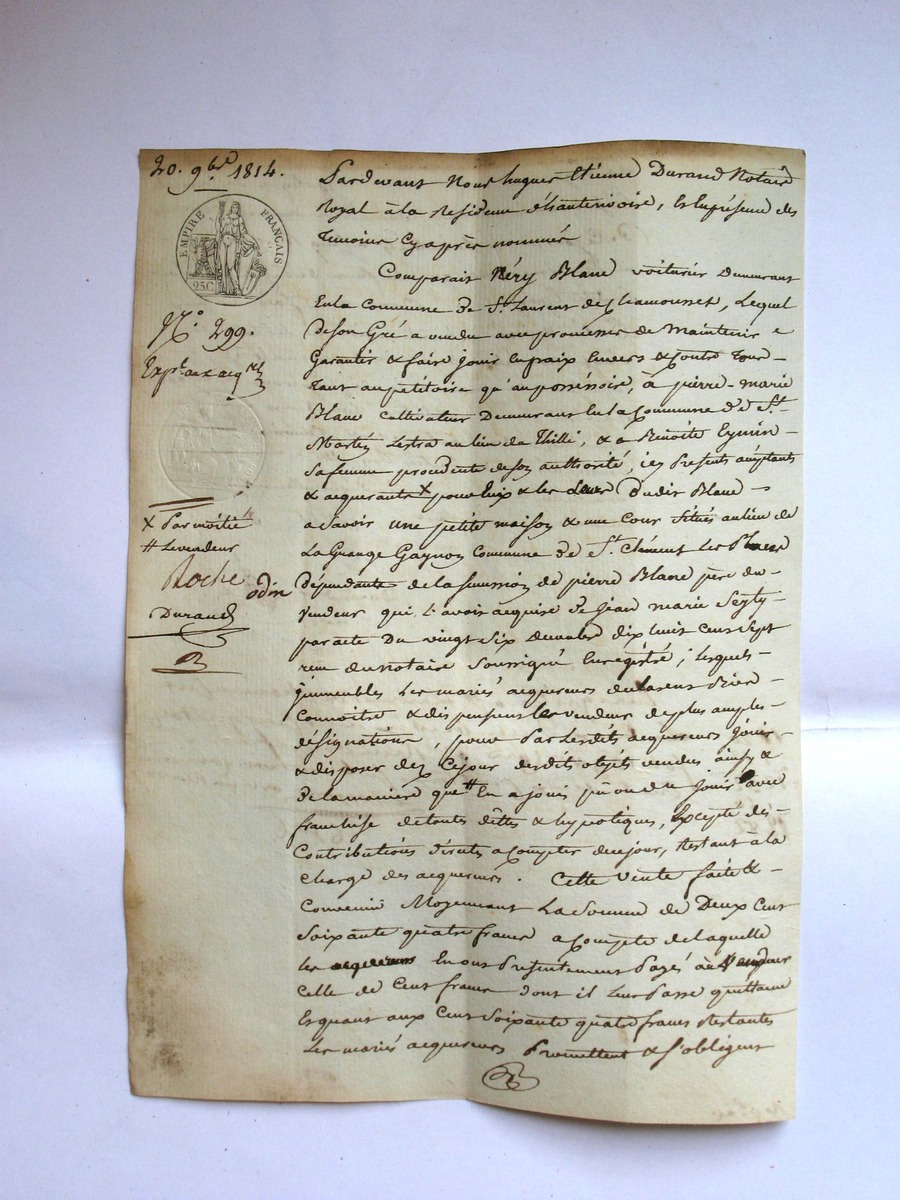 20. 9bre 1814.
EMPIRE FRANÇAIS
25C.
N.° 299.
Expt. aux acqrs
X Par moitié
# Le vendeur
Roche odin
Durand
Pardevant Nous hugues Etienne Durand Notaire
Royal à la Residence d'hauterivoire, Et En présence des
Temoins Cy après nommés
Comparait Néry Blanc voiturier Demeurant
En la Commune De St. Laurent de Chamousset, Lequel
de son Gré a vendu avec promesses de Maintenir e
Garantir & faire jouir En paix Envers & Contre Tous
Tant au pétitoire qu'au posséssoire, à pierre-marie
Blanc Cultivateur Demeurant En la Commune De St.
Martin Lestra au lieu du Thilli, & a Benoite Eymin
Sa femme procédente de son authorité, ici Présents acceptants
& acquerants X pour Eux & les Leurs Dudit Blanc
a Savoir une petite maison & une Cour Situés au lieu de
La Grange Gagnon Commune De St. Clément Les Places
dépendante de la Succession de pierre Blanc père du
vendeur qui L'avoit acquise De jean marie
par acte Du vingt Six Decembre dix huit Cent Sept
reçu du Notaire Soussigné Enregistré; Lesquels
jmmeubles Les mariés acquereurs declarent Bien
Connoitre & dispensent les vendeurs de plus amples
désignations, pour Par Lesdits acquereurs Jouir
& disposer dez Ce jour desdits objéts vendus ainsy &
De la maniere que # En a joui pu ou du Jouir avec
franchise de toutes dêttes & hypotiques, Excepté des
Contributions Directs a Compter de ce jour, Restant à la
Charge des acquereurs. Cette Vente faite &
Convenue Moyennant La Somme de Deux Cent
Soixante quatre francs a Compte de laquelle
les acquereurs En ont Présentement Payés au Vendeur
Celle de Cent francs dont il Leur Passe quittance
Et quant aux Cent Soixante quatre francs Restantes
Les mariés acquereurs Promettent & s'obligent